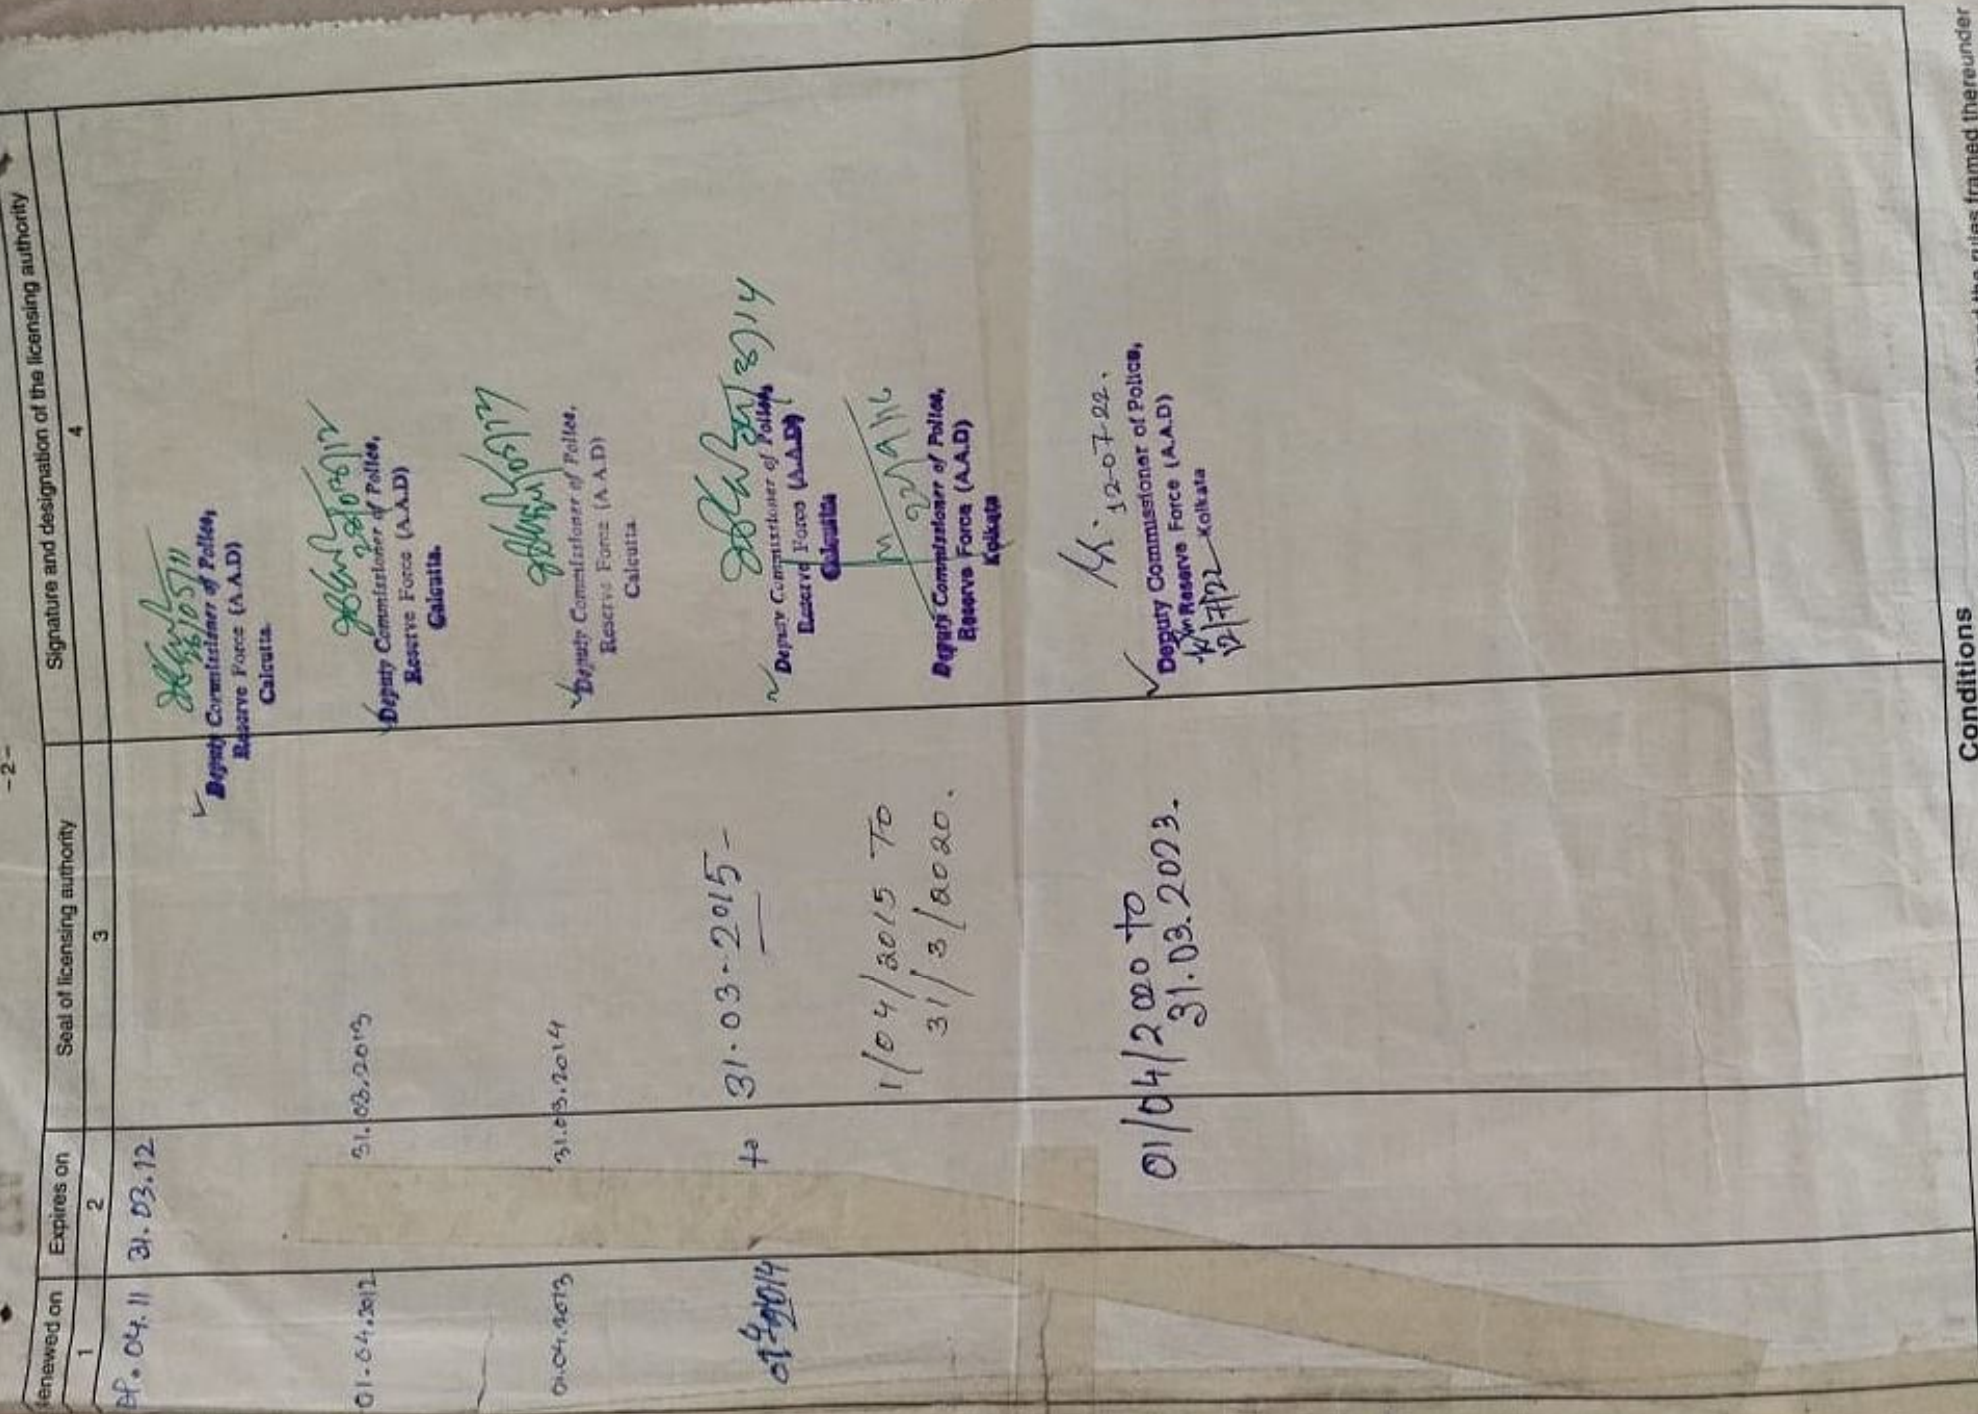 -2-
Renewed on
Expires on
Seal of licensing authority
Signature and designation of the licensing authority
1
2
3
4
04.11
31.03.12
Deputy Commissioner of Police,
Reserve Force (A.A.D)
Calcutta.
01.04.2012
31.03.2013
Deputy Commissioner of Police,
Reserve Force (A.A.D)
Calcutta.
01.04.2013
31.03.2014
Deputy Commissioner of Police,
Reserve Force (A.A.D)
Calcutta.
2014
to
31.03-2015-
Deputy Commissioner of Police,
Reserve Force (A.A.D)
Calcutta
1/04/2015 To
31/3/2020.
Deputy Commissioner of Police,
Reserve Force (A.A.D)
Kolkata
01/04/2020 to
31.03.2023.
12.07.22.
Deputy Commissioner of Police,
Reserve Force (A.A.D)
Kolkata
12/7/22
Conditions
the rules framed thereunder